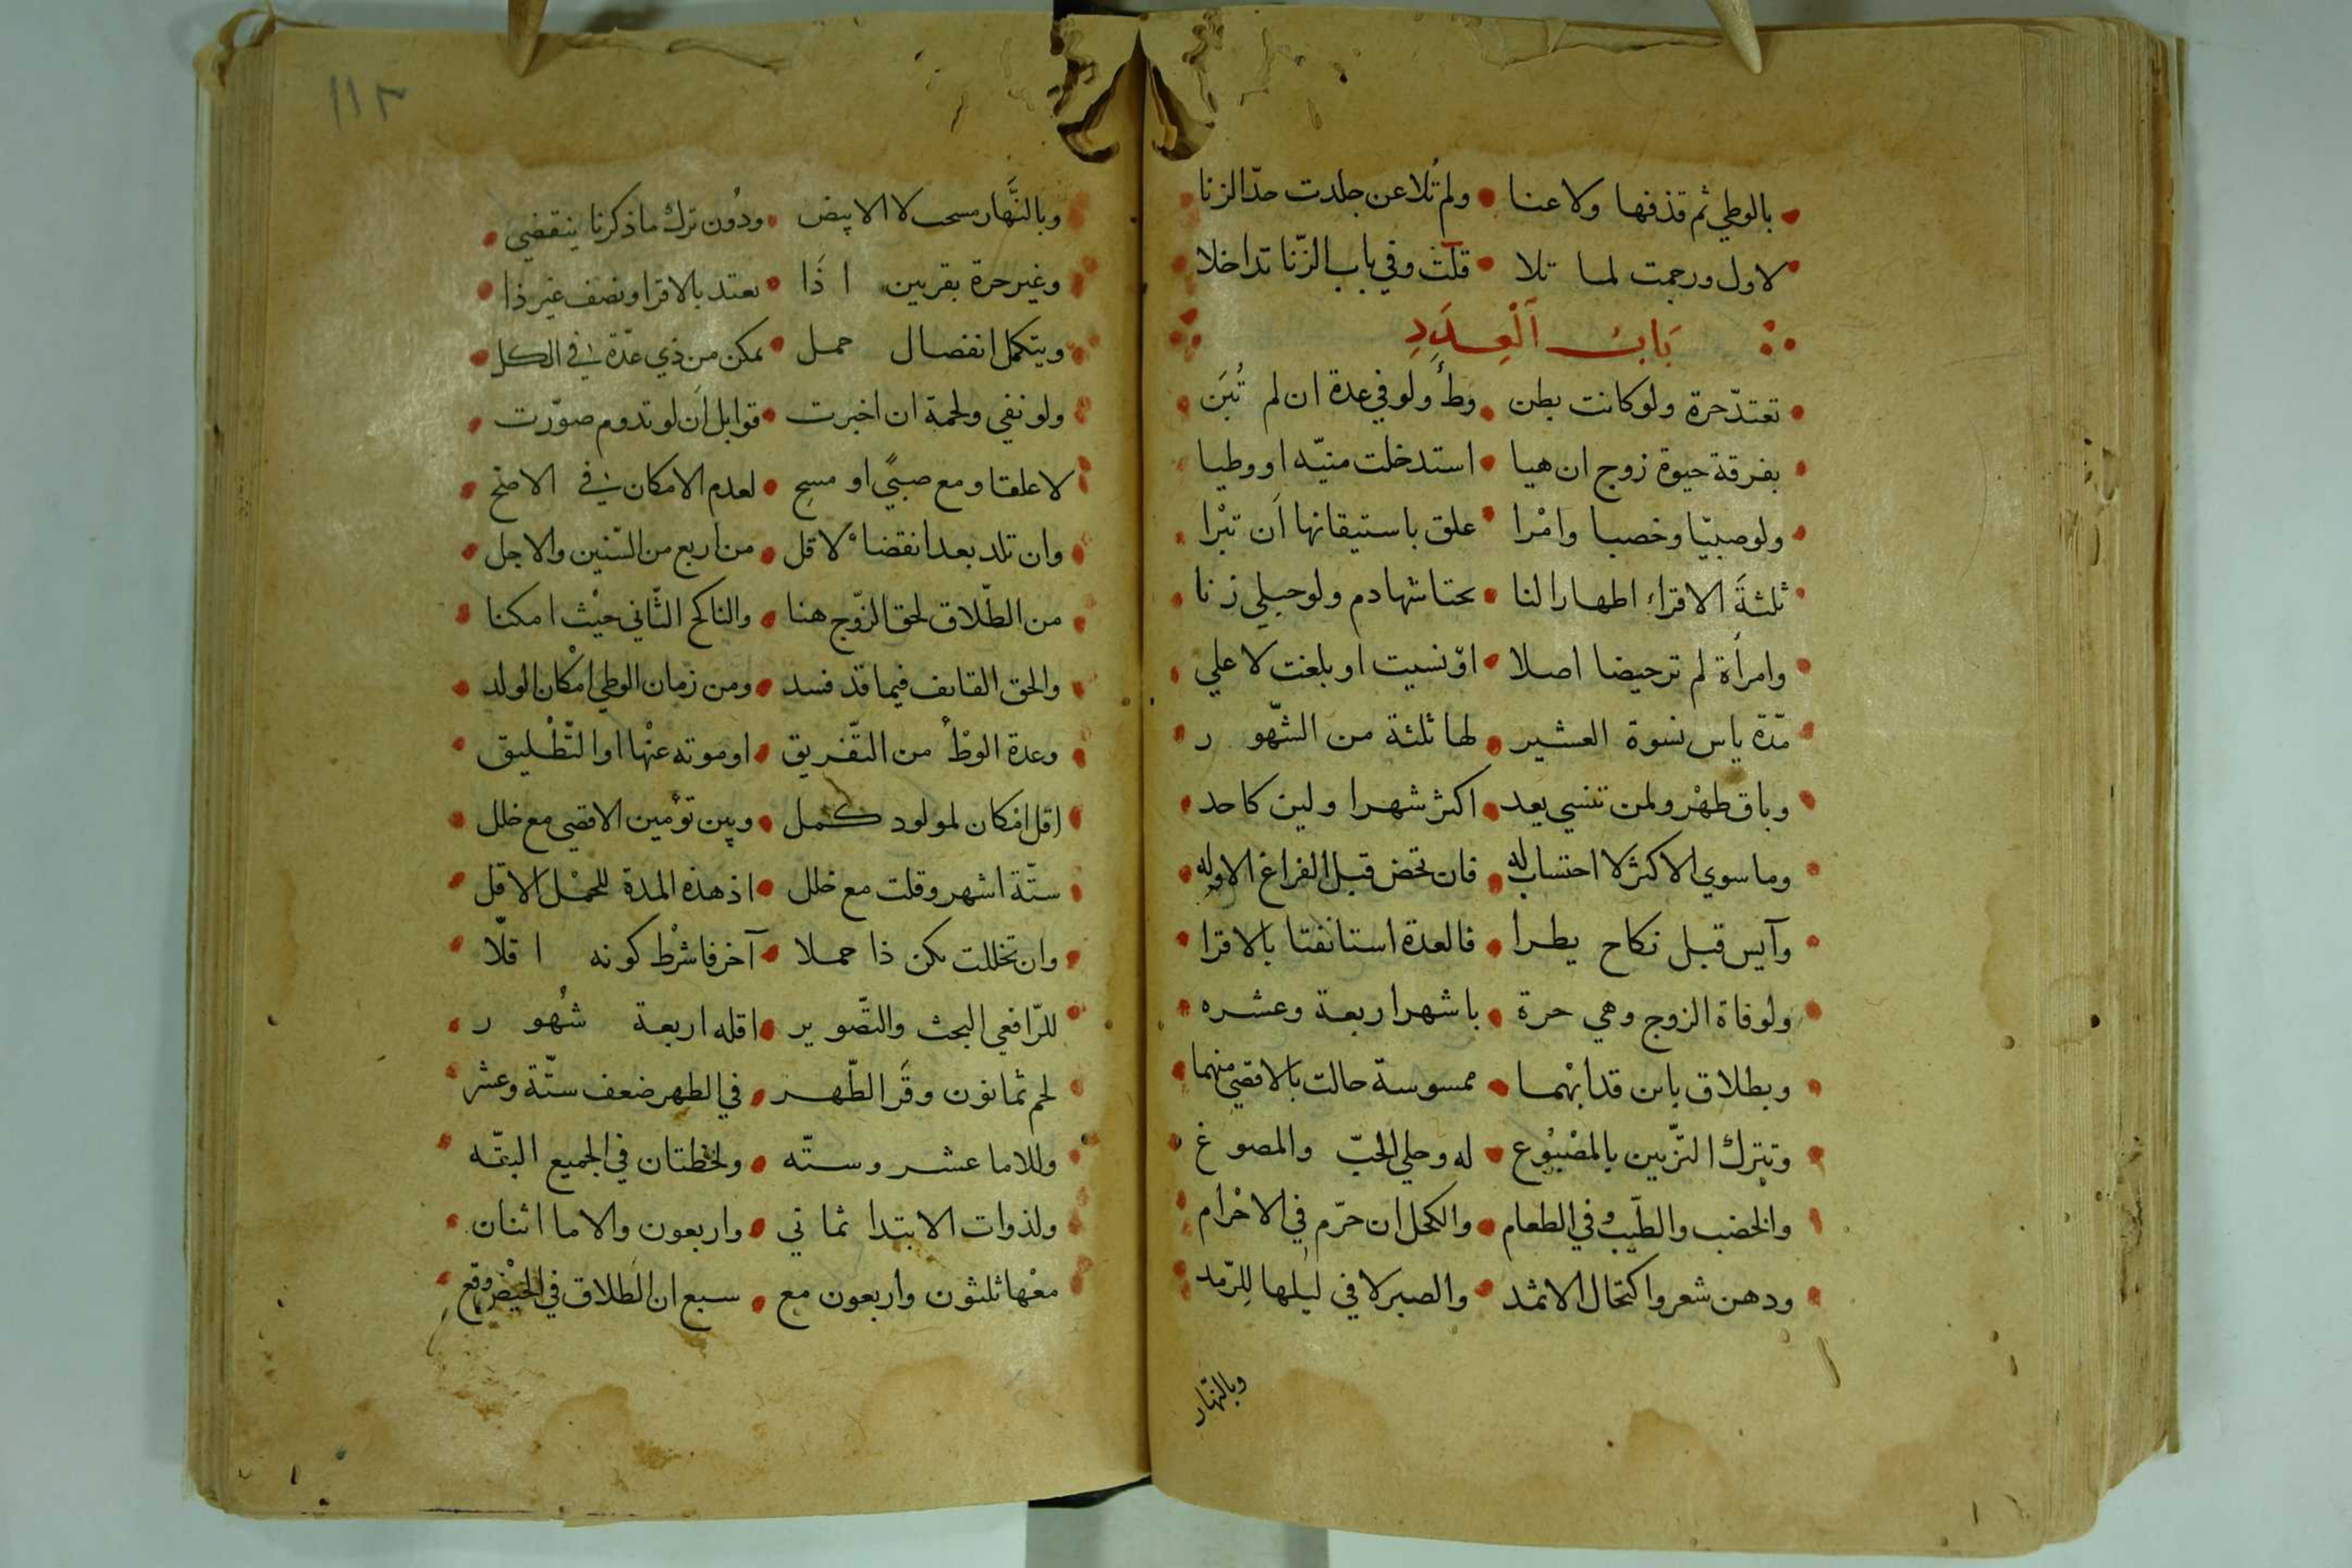 بالوطي ثم قذفها ولاعنا • ولم تُلاعن جلدت حدّ الزنا
لاول ورجمت لما تلا • قلت وفي باب الزّنا تداخلا
بَابُ اَلْعِدَدِ
تعتدّ حرة ولو كانت بطن • وَطْأً ولو في عدة ان لم تُبَن
بفرقة حيوة زوج ان هيا • استدخلت منيّه او وطيا
ولو صبيّا وخصيا وامْرا • علق باستيقانها اَن تبْرا
ثلثةَ الاقراء اطهارا لنا • بحتاشها دم ولو حبلي زنا
وامراَة لم تر حيضا اصلا • اوْ نسيت او بلغت لا علي
مّدة ياس نسوة العشير • لها ثلثة من الشّهور
وباق طهْر ولمن تنسي يعد • اكثر شهرا ولين كاحد
وما سوي الاكثر لا احتساب له • فان تحض قبل الفراغ الاوله
وآيس قبل نكاح يطرا • فالعدة استانفتا بالاقرا
ولوفاة الزوج وهي حرة • باشهر اربعة وعشره
وبطلاق باىن قد ابْهما • ممسوسة حالت بالاقصي منهما
وتترك التزّيين بالمصْبُوع • له وحلي الحبّ والمصوغ
والخضب والطّيب وفي الطعام • والكحل ان حرّم في الاحْرام
ودهن شعر واكتحال الاثمد • والصبر لا في ليلها للِرّمد
وبالنّهار
١١٢
وبالنَّهار مسحب لا الابيض • ودُون ترك ما ذكرنا ينقضي
وغير حرة بقريين اذَا • تعتد بالاقرا ونصف غير ذا
ويتكمل انفصال حمل • يمكن من ذي عدّة في الكل
ولو نفي ولحمة ان اخبرت • قوابل اَن لو تدوم صوّرت
لا علقا ومع صبيً او مسحِ • لعدم الامكان في الاصح
وان تلد بعد انقضاء لاقل • من اربع من السّنين والاجل
من الطّلاق لحق الزّوج هنا • والناكح الثّاني حيْث امكنا
والحق القايف فيما قد فسد • ومن زمان الوطي امْكان الولد
وعدة الوطْأ من التّفريق • او موته عنْها او التّطْليق
اقل امكان لمولود كمل • وبين توْمين الاقصي مع خلل
ستّة اشهر وقلت مع خلل • اذ هذه المدة للحمْل الاقل
وان تخللت يكن ذا حملا • آخر فاشرْط كونه اقلّا
للرّافعي البحث والتصّوير • اقله اربعة شُهور
لحم ثمانون وقَرا الطّهر • في الطهر ضعف ستّة وعشر
وللاما عشر وستّه • ولحظتان في الجميع البتّه
ولذوات الابتدا ثماني • واربعون والاما اثنان
معْها ثلثون واَربعون مع • سبع ان الطلاق في الحيْض وقع